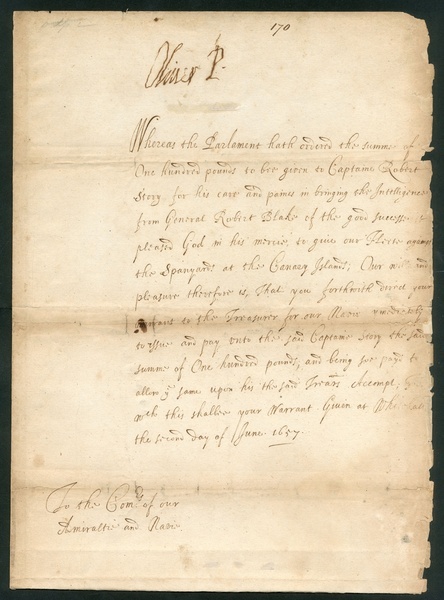 170
Oliver P.
Whereas the Parlament hath ordered the summe of
One hundred pounds to bee given to Captaine Robert
Story for his care and paines in bringing the Intelligence
from Generall Robert Blake of the good successe it
pleased God in his mercie, to give our Fleete against
the Spanyards at the Canary Islands; Our will and
pleasure therefore is, That you forthwith direct your
to the Treasurer for our Navie
to issue and pay unto the said Captaine Story the said
summe of One hundred pounds, and being soe payd to
allow ye same upon his the said Accompt;
wch this shalbee your Warrant. Given at
the second day of June 1657.
To the Comrs. of our
Admiraltie and Navie.